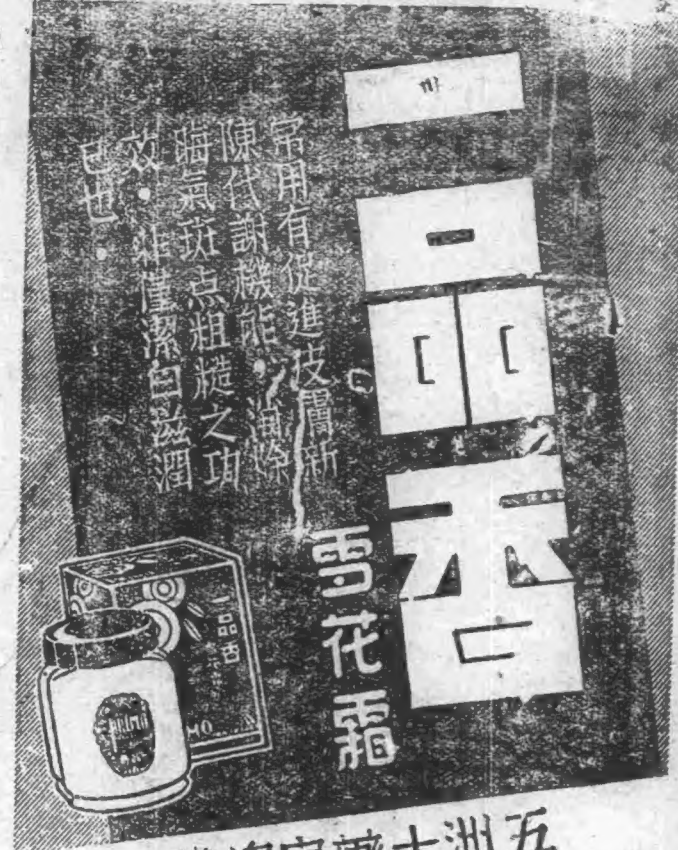 一品香
雪花霜
常用有促進皮膚新
陳代謝機能，消除
晦氣斑点粗糙之功
效。非僅潔白滋潤
已也。
一品香
五洲大藥房